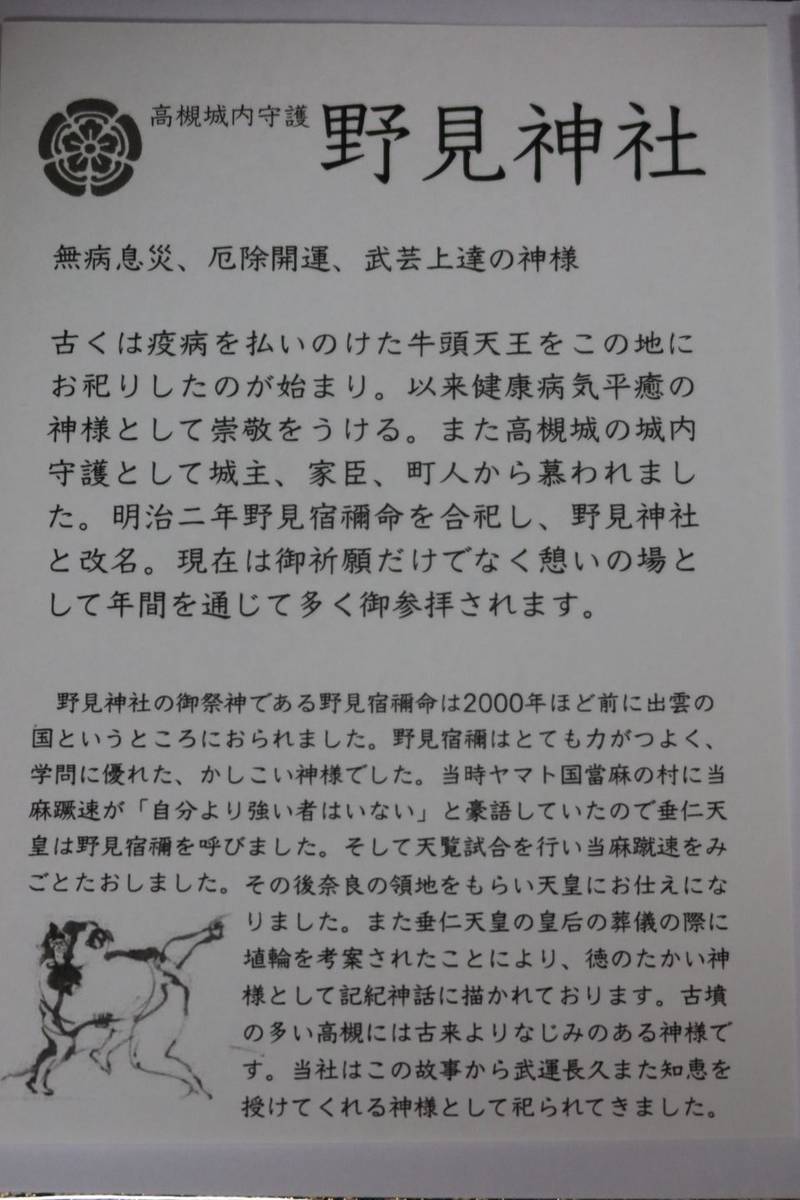 高槻城内守護 野見神社
無病息災、厄除開運、武芸上達の神様
古くは疫病を払いのけた牛頭天王をこの地に
お祀りしたのが始まり。以来健康病気平癒の
神様として崇敬をうける。また高槻城の城内
守護として城主、家臣、町人から慕われまし
た。明治二年野見宿禰命を合祀し、野見神社
と改名。現在は御祈願だけでなく憩いの場と
して年間を通じて多く御参拝されます。
野見神社の御祭神である野見宿禰命は2000年ほど前に出雲の
国というところにおられました。野見宿禰はとても力がつよく、
学問に優れた、かしこい神様でした。当時ヤマト国當麻の村に当
麻蹶速が「自分より強い者はいない」と豪語していたので垂仁天
皇は野見宿禰を呼びました。そして天覧試合を行い当麻蹴速をみ
ごとたおしました。その後奈良の領地をもらい天皇にお仕えにな
りました。また垂仁天皇の皇后の葬儀の際に
埴輪を考案されたことにより、徳のたかい神
様として記紀神話に描かれております。古墳
の多い高槻には古来よりなじみのある神様で
す。当社はこの故事から武運長久また知恵を
授けてくれる神様として祀られてきました。